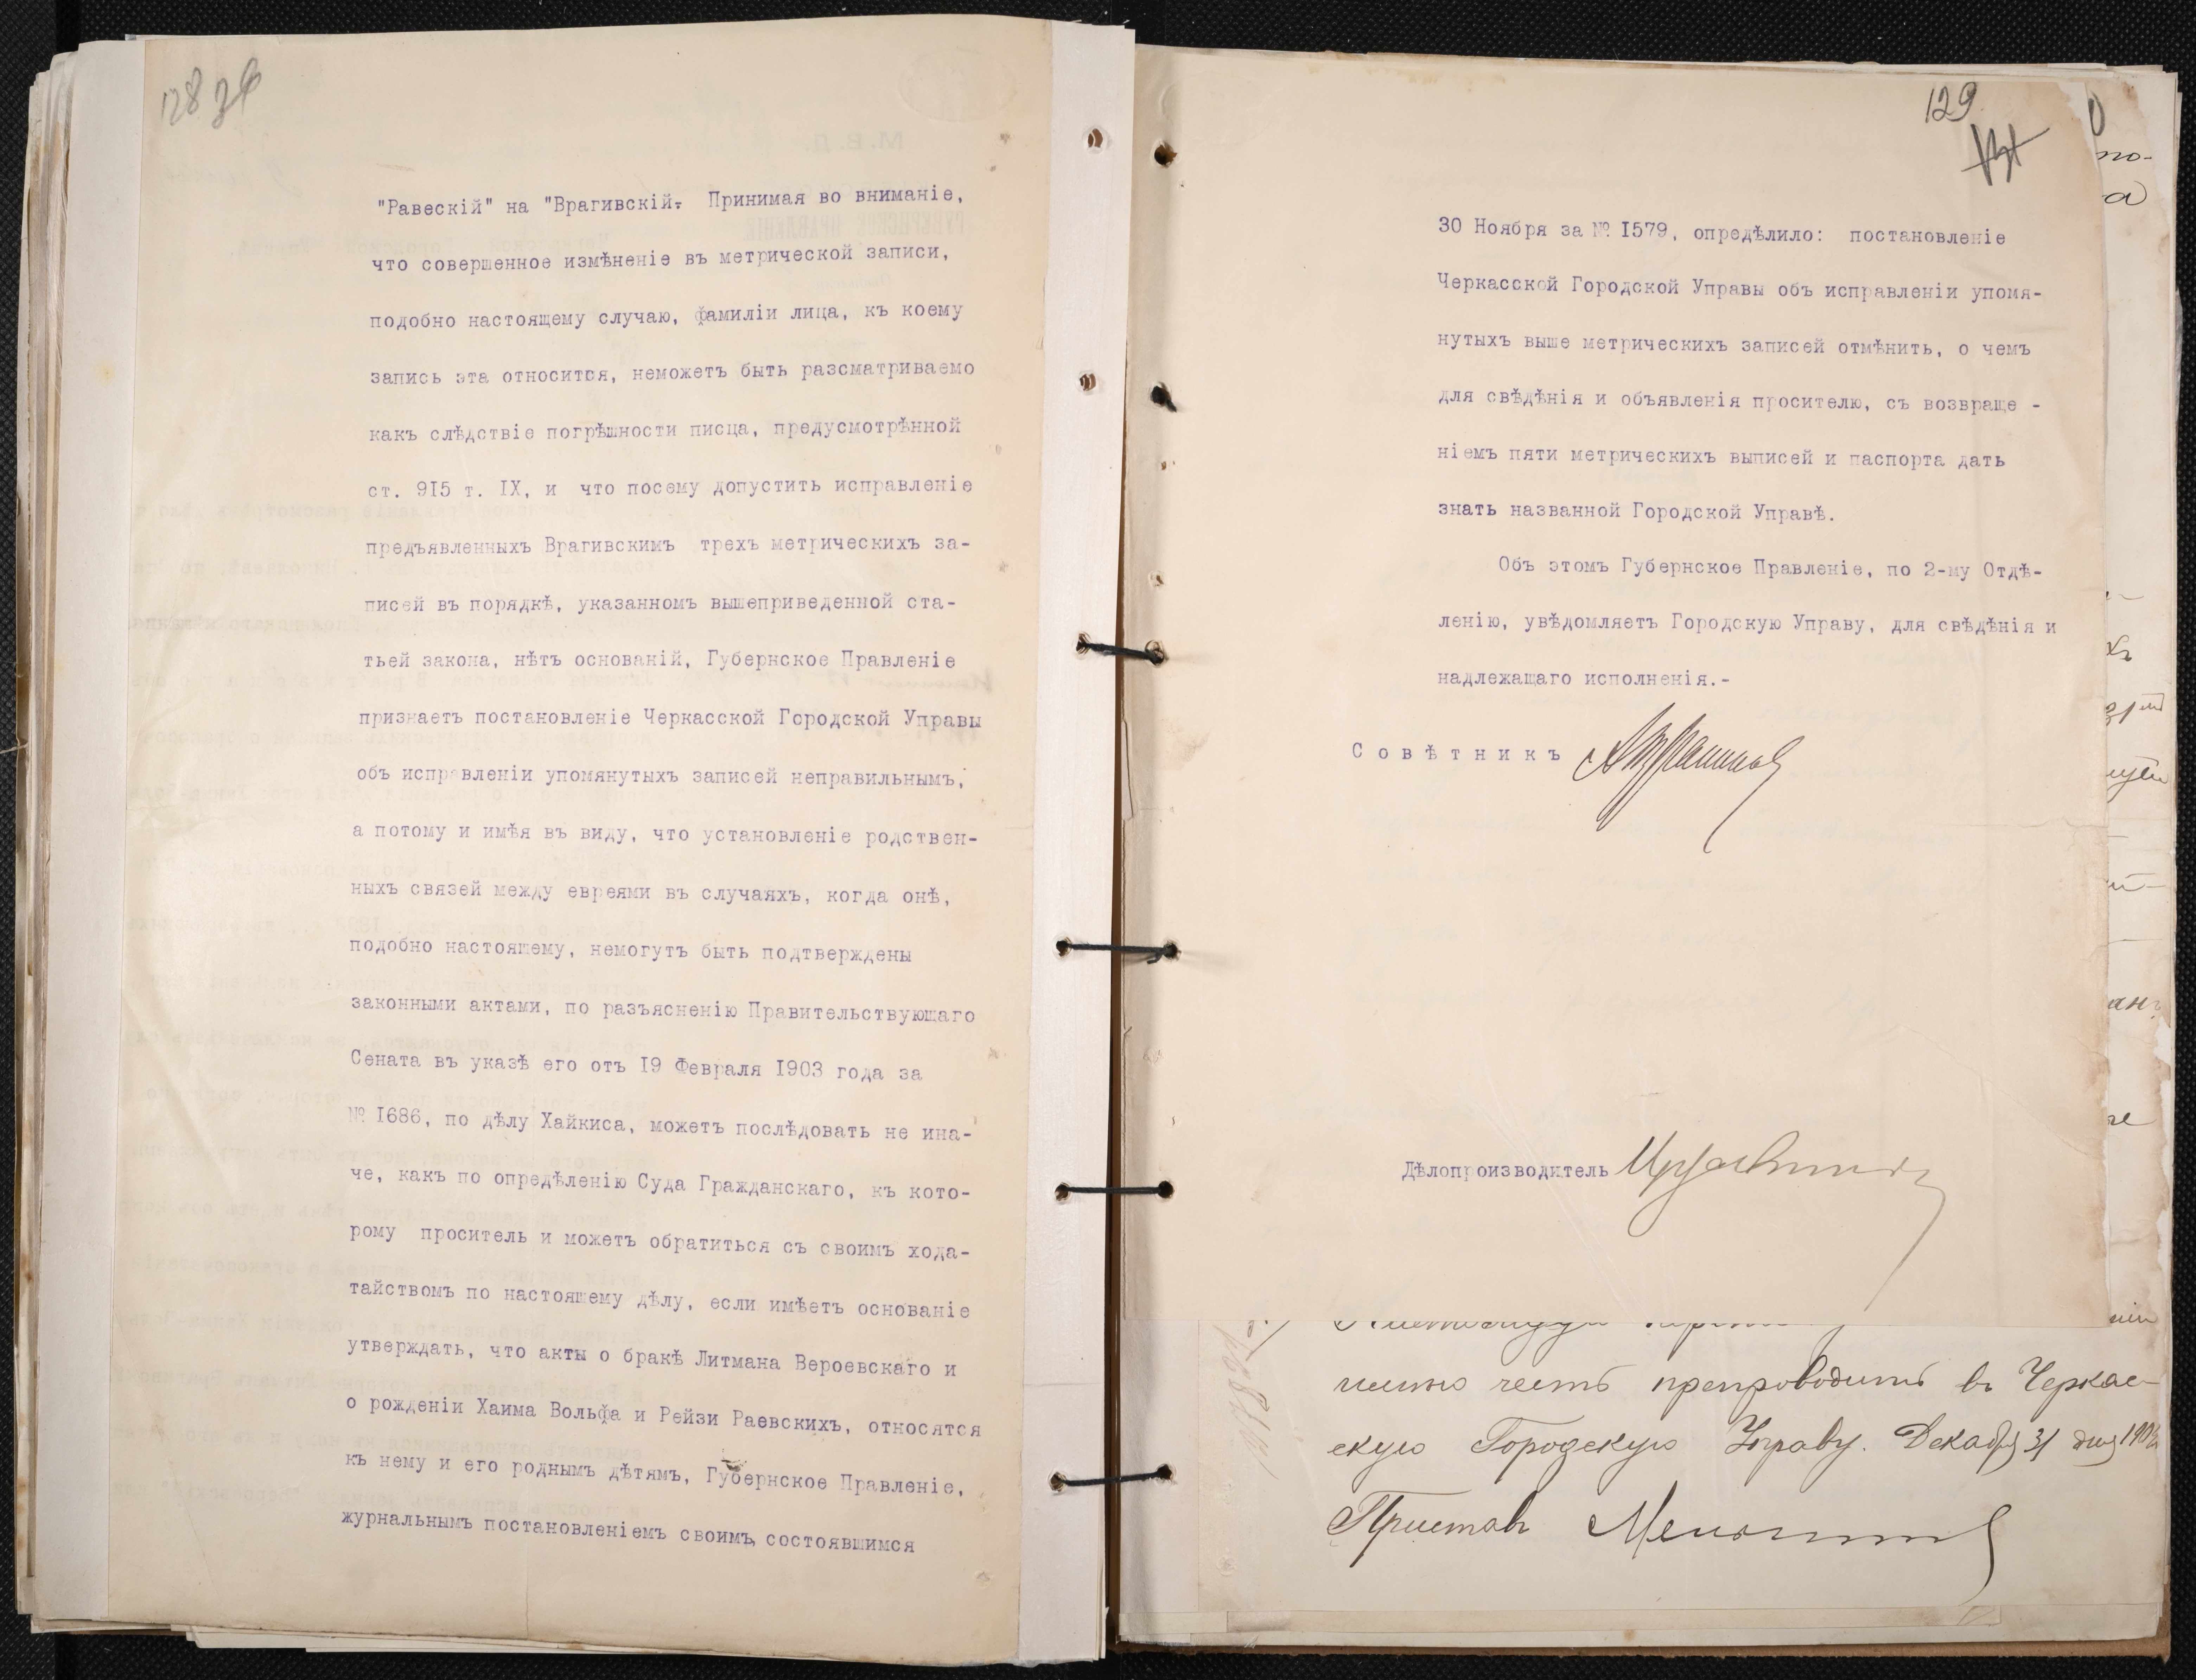 128
"Равескій" на "Врагивскій. Принимая во вниманіе,
что совершенное измѣненіе въ метрической записи,
подобно настоящему случаю, фамиліи лица, къ коему
запись эта относится, неможетъ быть разсматриваемо
какъ слѣдствіе погрѣшности писца, предусмотрѣнной
ст. 9I5 т. IX, и что посему допустить исправленіе
предъявленныхъ Врагивскимъ трехъ метрическихъ за-
писей въ порядкѣ, указанномъ вышеприведенной ста-
тьей закона, нѣтъ основаній, Губернское Правленіе
признаетъ постановленіе Черкасской Городской Управы
объ исправленіи упомянутыхъ записей неправильнымъ,
а потому и имѣя въ виду, что установленіе родствен-
ныхъ связей между евреями въ случаяхъ, когда онѣ,
подобно настоящему, немогутъ быть подтверждены
законными актами, по разъясненію Правительствующаго
Сената въ указѣ его отъ I9 Февраля I903 года за
№ I686, по дѣлу Хайкиса, можетъ послѣдовать не ина-
че, какъ по опредѣленію Суда Гражданскаго, къ кото-
рому проситель и можетъ обратиться съ своимъ хода-
тайствомъ по настоящему дѣлу, если имѣетъ основаніе
утверждать, что акты о бракѣ Литмана Вероевскаго и
о рожденіи Хаима Вольфа и Рейзи Раевскихъ, относятся
къ нему и его роднымъ дѣтямъ, Губернское Правленіе,
журнальнымъ постановленіемъ своимъ, состоявшимся
129
30 Ноября за № I579, опредѣлило: постановленіе
Черкасской Городской Управы объ исправленіи упомя-
нутыхъ выше метрическихъ записей отмѣнить, о чемъ
для свѣдѣнія и объявленія просителю, съ возвраще -
ніемъ пяти метрическихъ выписей и паспорта дать
знать названной Городской Управѣ.
Объ этомъ Губернское Правленіе, по 2-му Отдѣ-
ленію, увѣдомляетъ Городскую Управу, для свѣдѣнія и
надлежащаго исполненія.-
Совѣтникъ
Дѣлопроизводитель
честь препроводить въ Черкас-
скую Городскую Управу. Декабря 31 дня
Приставъ